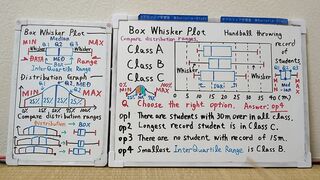 Box Whisker Plot
Median
MIN Q1 Q2 Q3 MAX
Whisker Whisker
DATA MED Range
InterQuartile Range
Distribution Graph
MIN MED MAX
25% 25% 25% 25%
Compare distribution ranges
Distribution BOX
Box Whisker Plot Handball throwing
Compare distribution ranges. record of students
Class A
Class B
Class C
Whisker Whisker
MIN MAX
10 15 20 25 30 35 (m)
Q Choose the right option. Answer: op4
op1 There are students with 30m over in all class.
op2 Longest record student is in Class C.
op3 There are no student with record of 15m.
op4 Smallest InterQuartile Range is Class B.